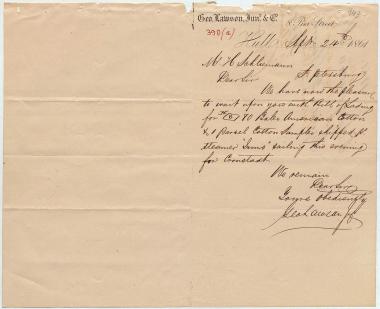 Geo. Lawson, Junr. & Co.
390(a)
Hull Septr 24th 1861
Mr H Schliemann
St Petersburg
Dear Sir
We have now the pleasure
to wait upon you with Bill of Lading
for 80 Bales American Cotton
& 1 Parcel Cotton Samples shipped p
steamer "Emus" sailing this evening
for Cronstadt.
We remain
Dear Sir
Yours Obediently
Geo Lawson Jr